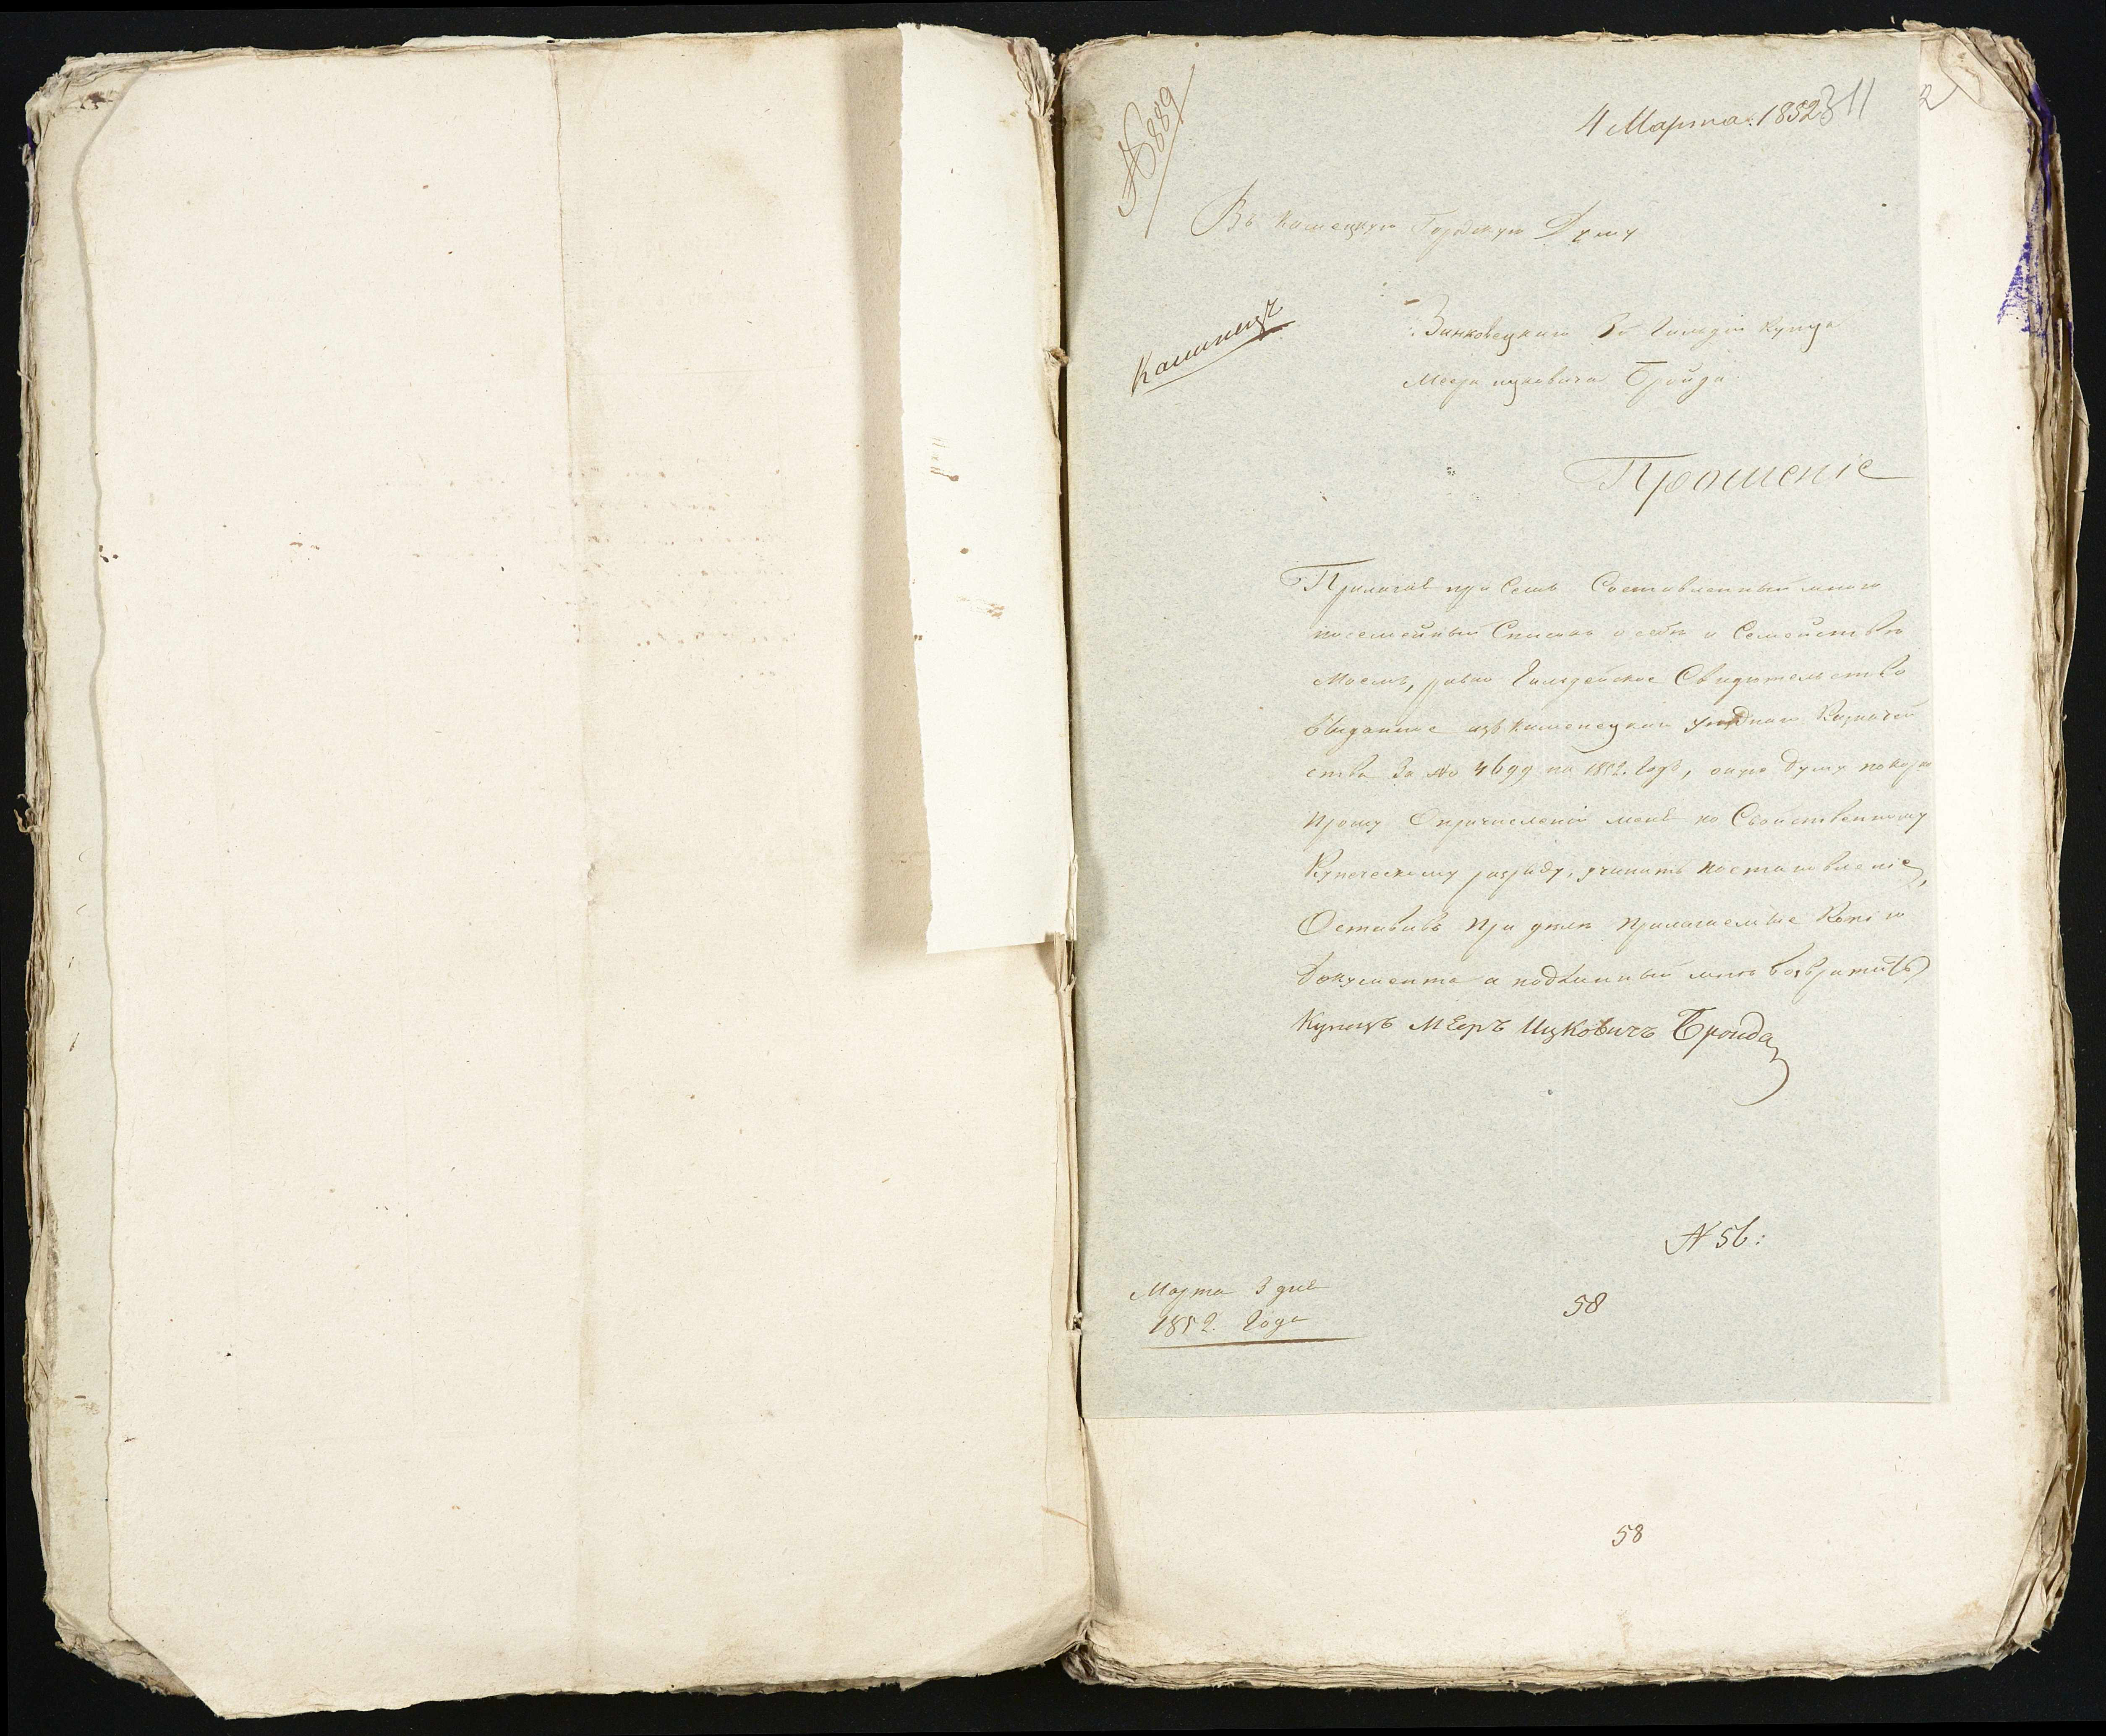 № 889
4 Марта. 1852 311
2
Въ Камецкую Городскую Думу
Каменецъ
Зинковецкаго 3й Гильдіи Купца
Меера ицковича Бройда
Прошеніе
Прилагая при Семъ Составленный мною
посемейный Списокъ о себѣ и Семействѣ
Моемъ, равно Гильдейское Свидѣтельство
Выданное изъ Каменецкаго уѣзднаго Казначей
ства За № 4699 на 1852. Годъ, оную Думу покорн
Прошу О причисленіи меня по Свойственному
Купеческому разряду, учинить постановленіе,
Оставивъ При дѣлѣ Прилагаемые Копію
Документа а подлинный мнѣ возвратить
Купецъ МЕеръ Ицковичъ Бройда
№ 56:
Марта 3 дня
1852. Года
58
58